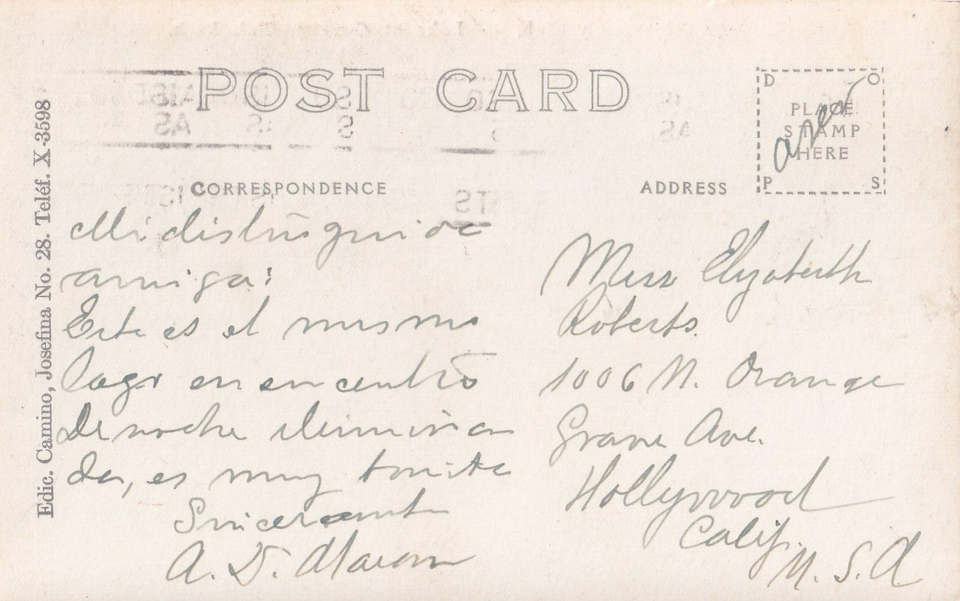 POST CARD
D O
PLACE
STAMP
HERE
P S
CORRESPONDENCE
ADDRESS
Edic. Camino, Josefina No. 28. Teléf. X-3598
Mi distinguida
amiga:
Este es el mismo
lago en
De noche
da, es muy bonito
A. D.
Miss Elyzabeth
Roberts.
1006 N. Orange
Grove Ave.
Hollywood
Calif.
U. S. A